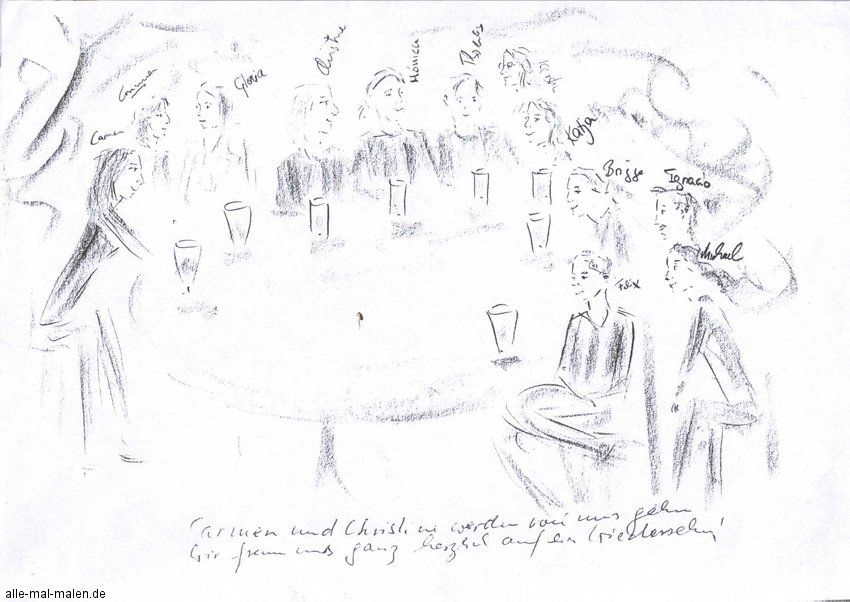 Gloria
Christine
Monica
Thomas
Carmen
Katja
Brigge
Ignacio
Michael
Felix
Carmen und Christine werden von uns gehn
Wir freun uns ganz herzlich auf ein Wiedersehn!
alle-mal-malen.de